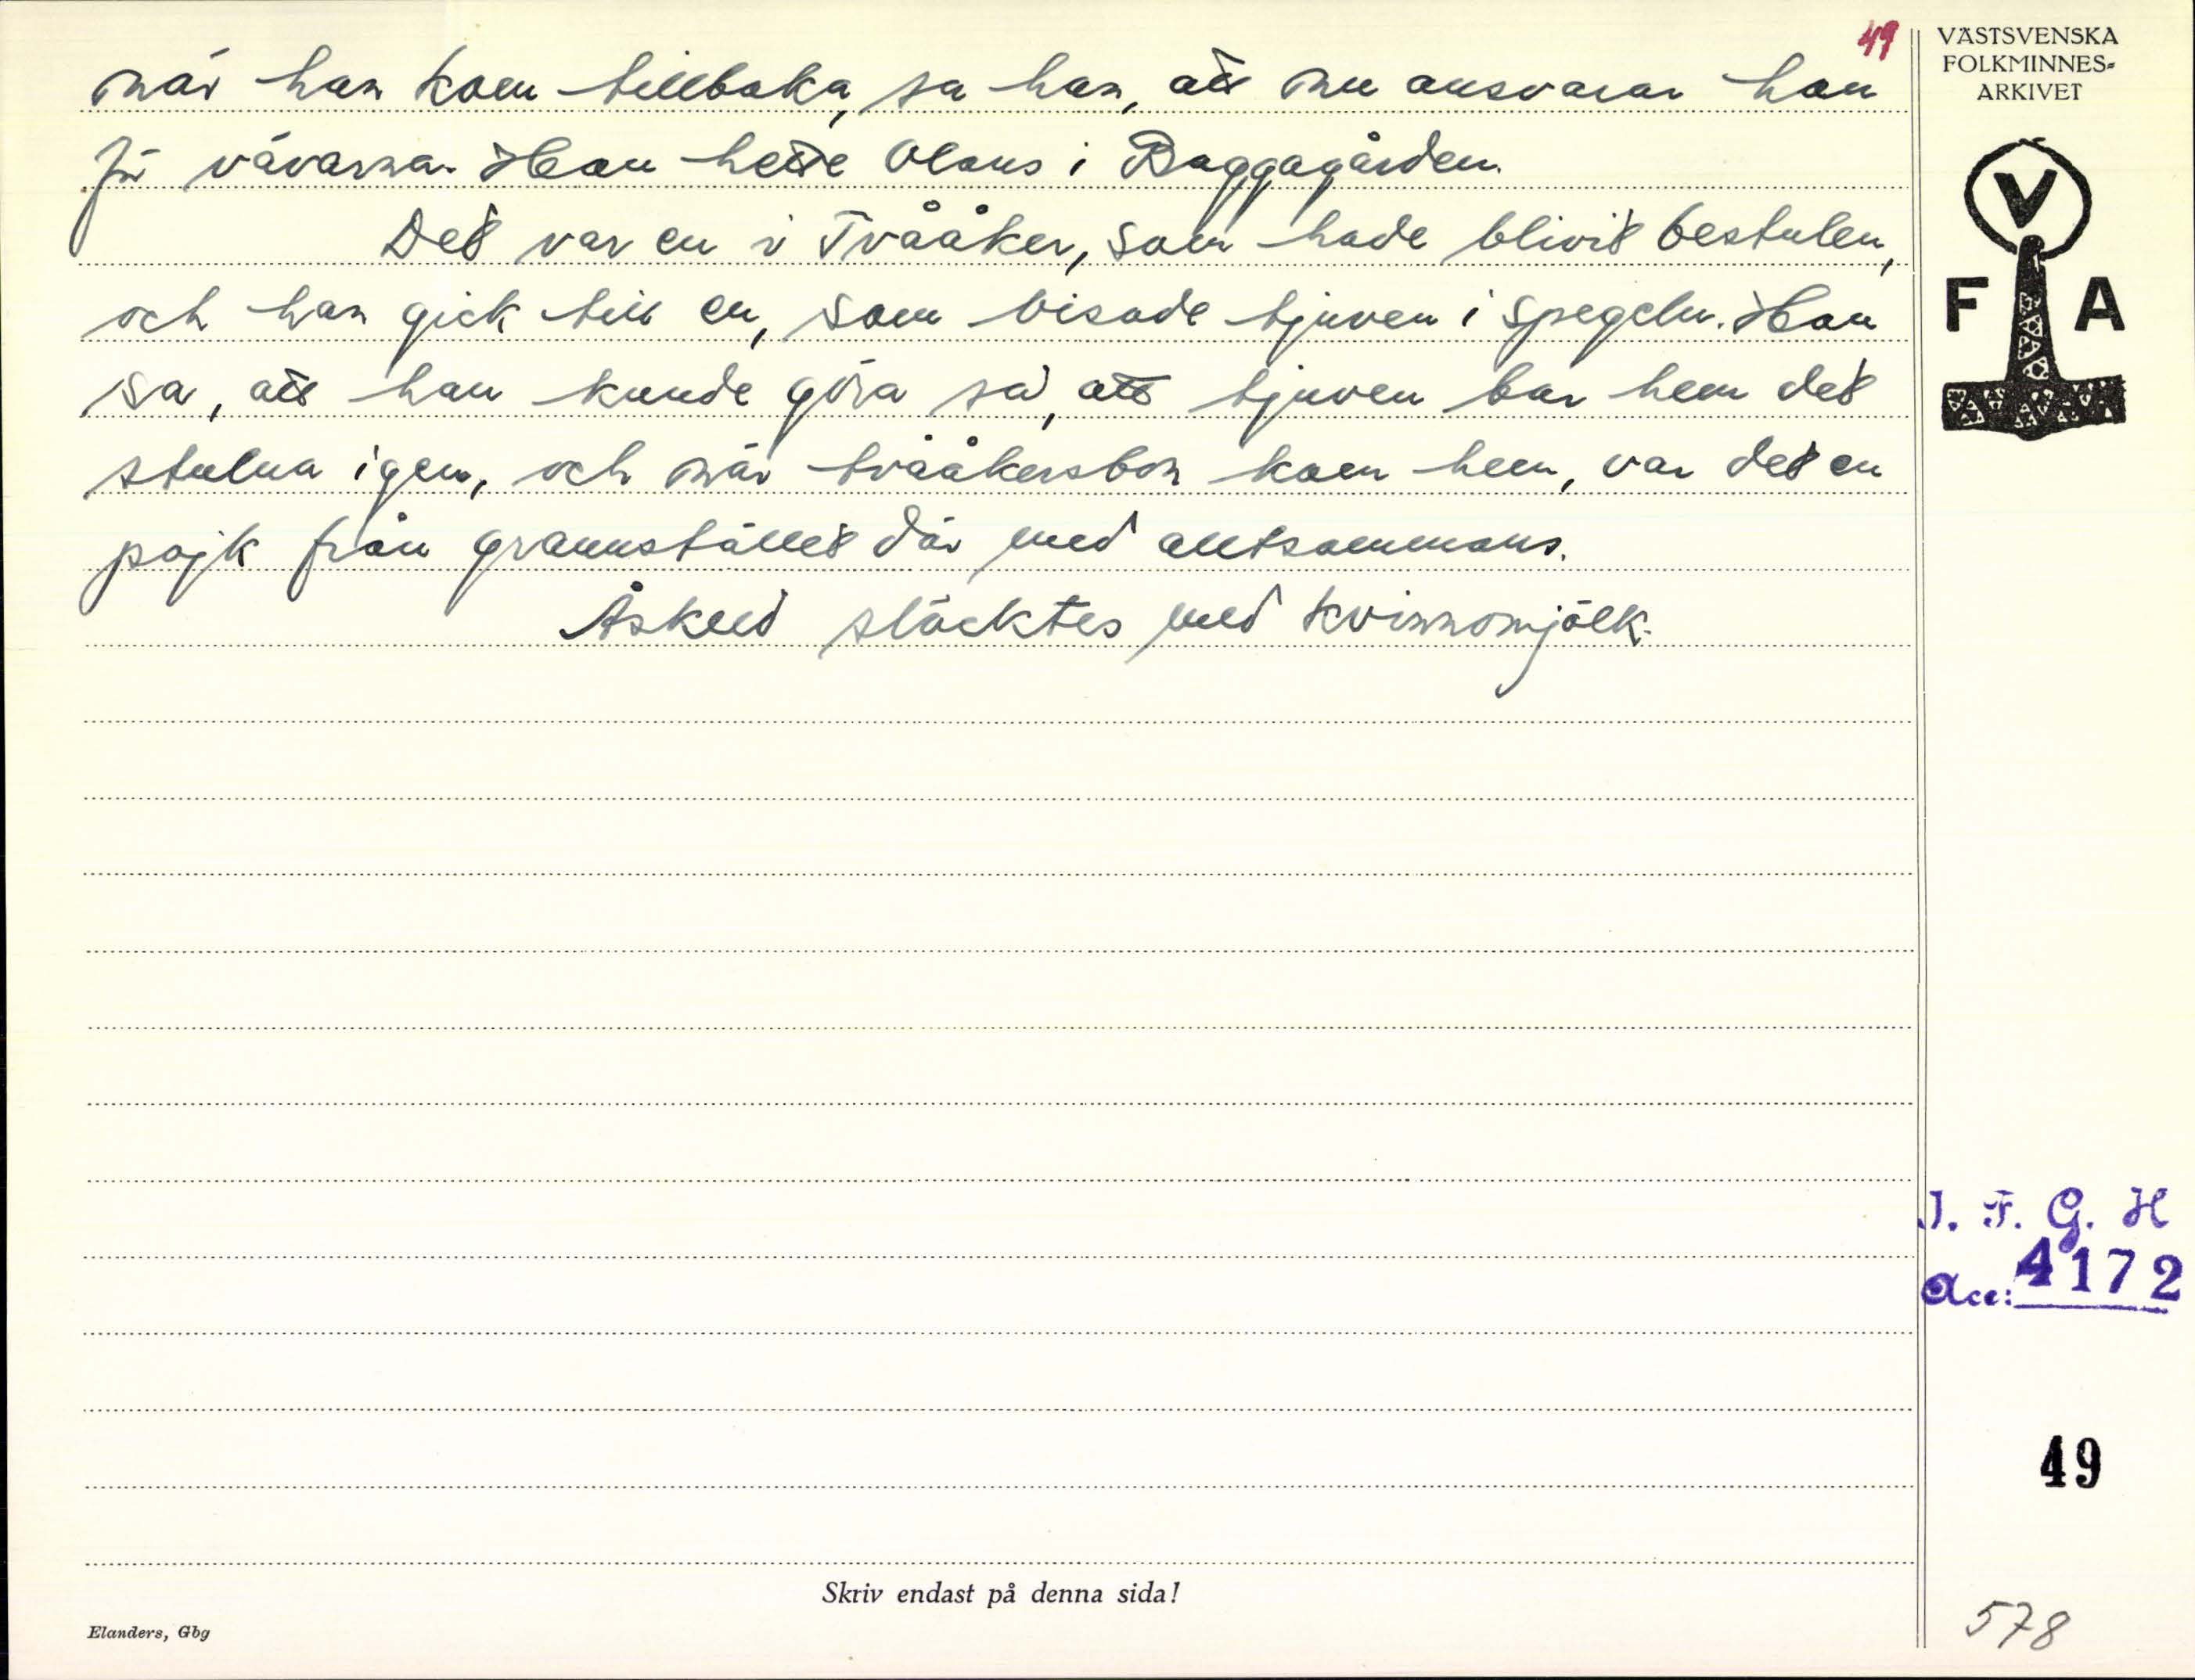 49
när han kom tillbaka, sa han, att nu ansvarar han
för vävarna. Han hette Olaus i Baggagården.
Det var en i Tvååker, som hade blivit bestulen,
och han gick till en, som visade tjuven i spegeln. Han
sa, att han kunde göra så, att tjuven bar hem det
stulna igen, och när tvååkersbon kom hem, var det en
pojk från grannstället där med alltsammans.
Åskeld släcktes med kvinnomjölk.
VÄSTSVENSKA
FOLKMINNES-
ARKIVET
V
F A
I. F. G. H
Acc: 4172
49
Skriv endast på denna sida!
Elanders, Gbg
578